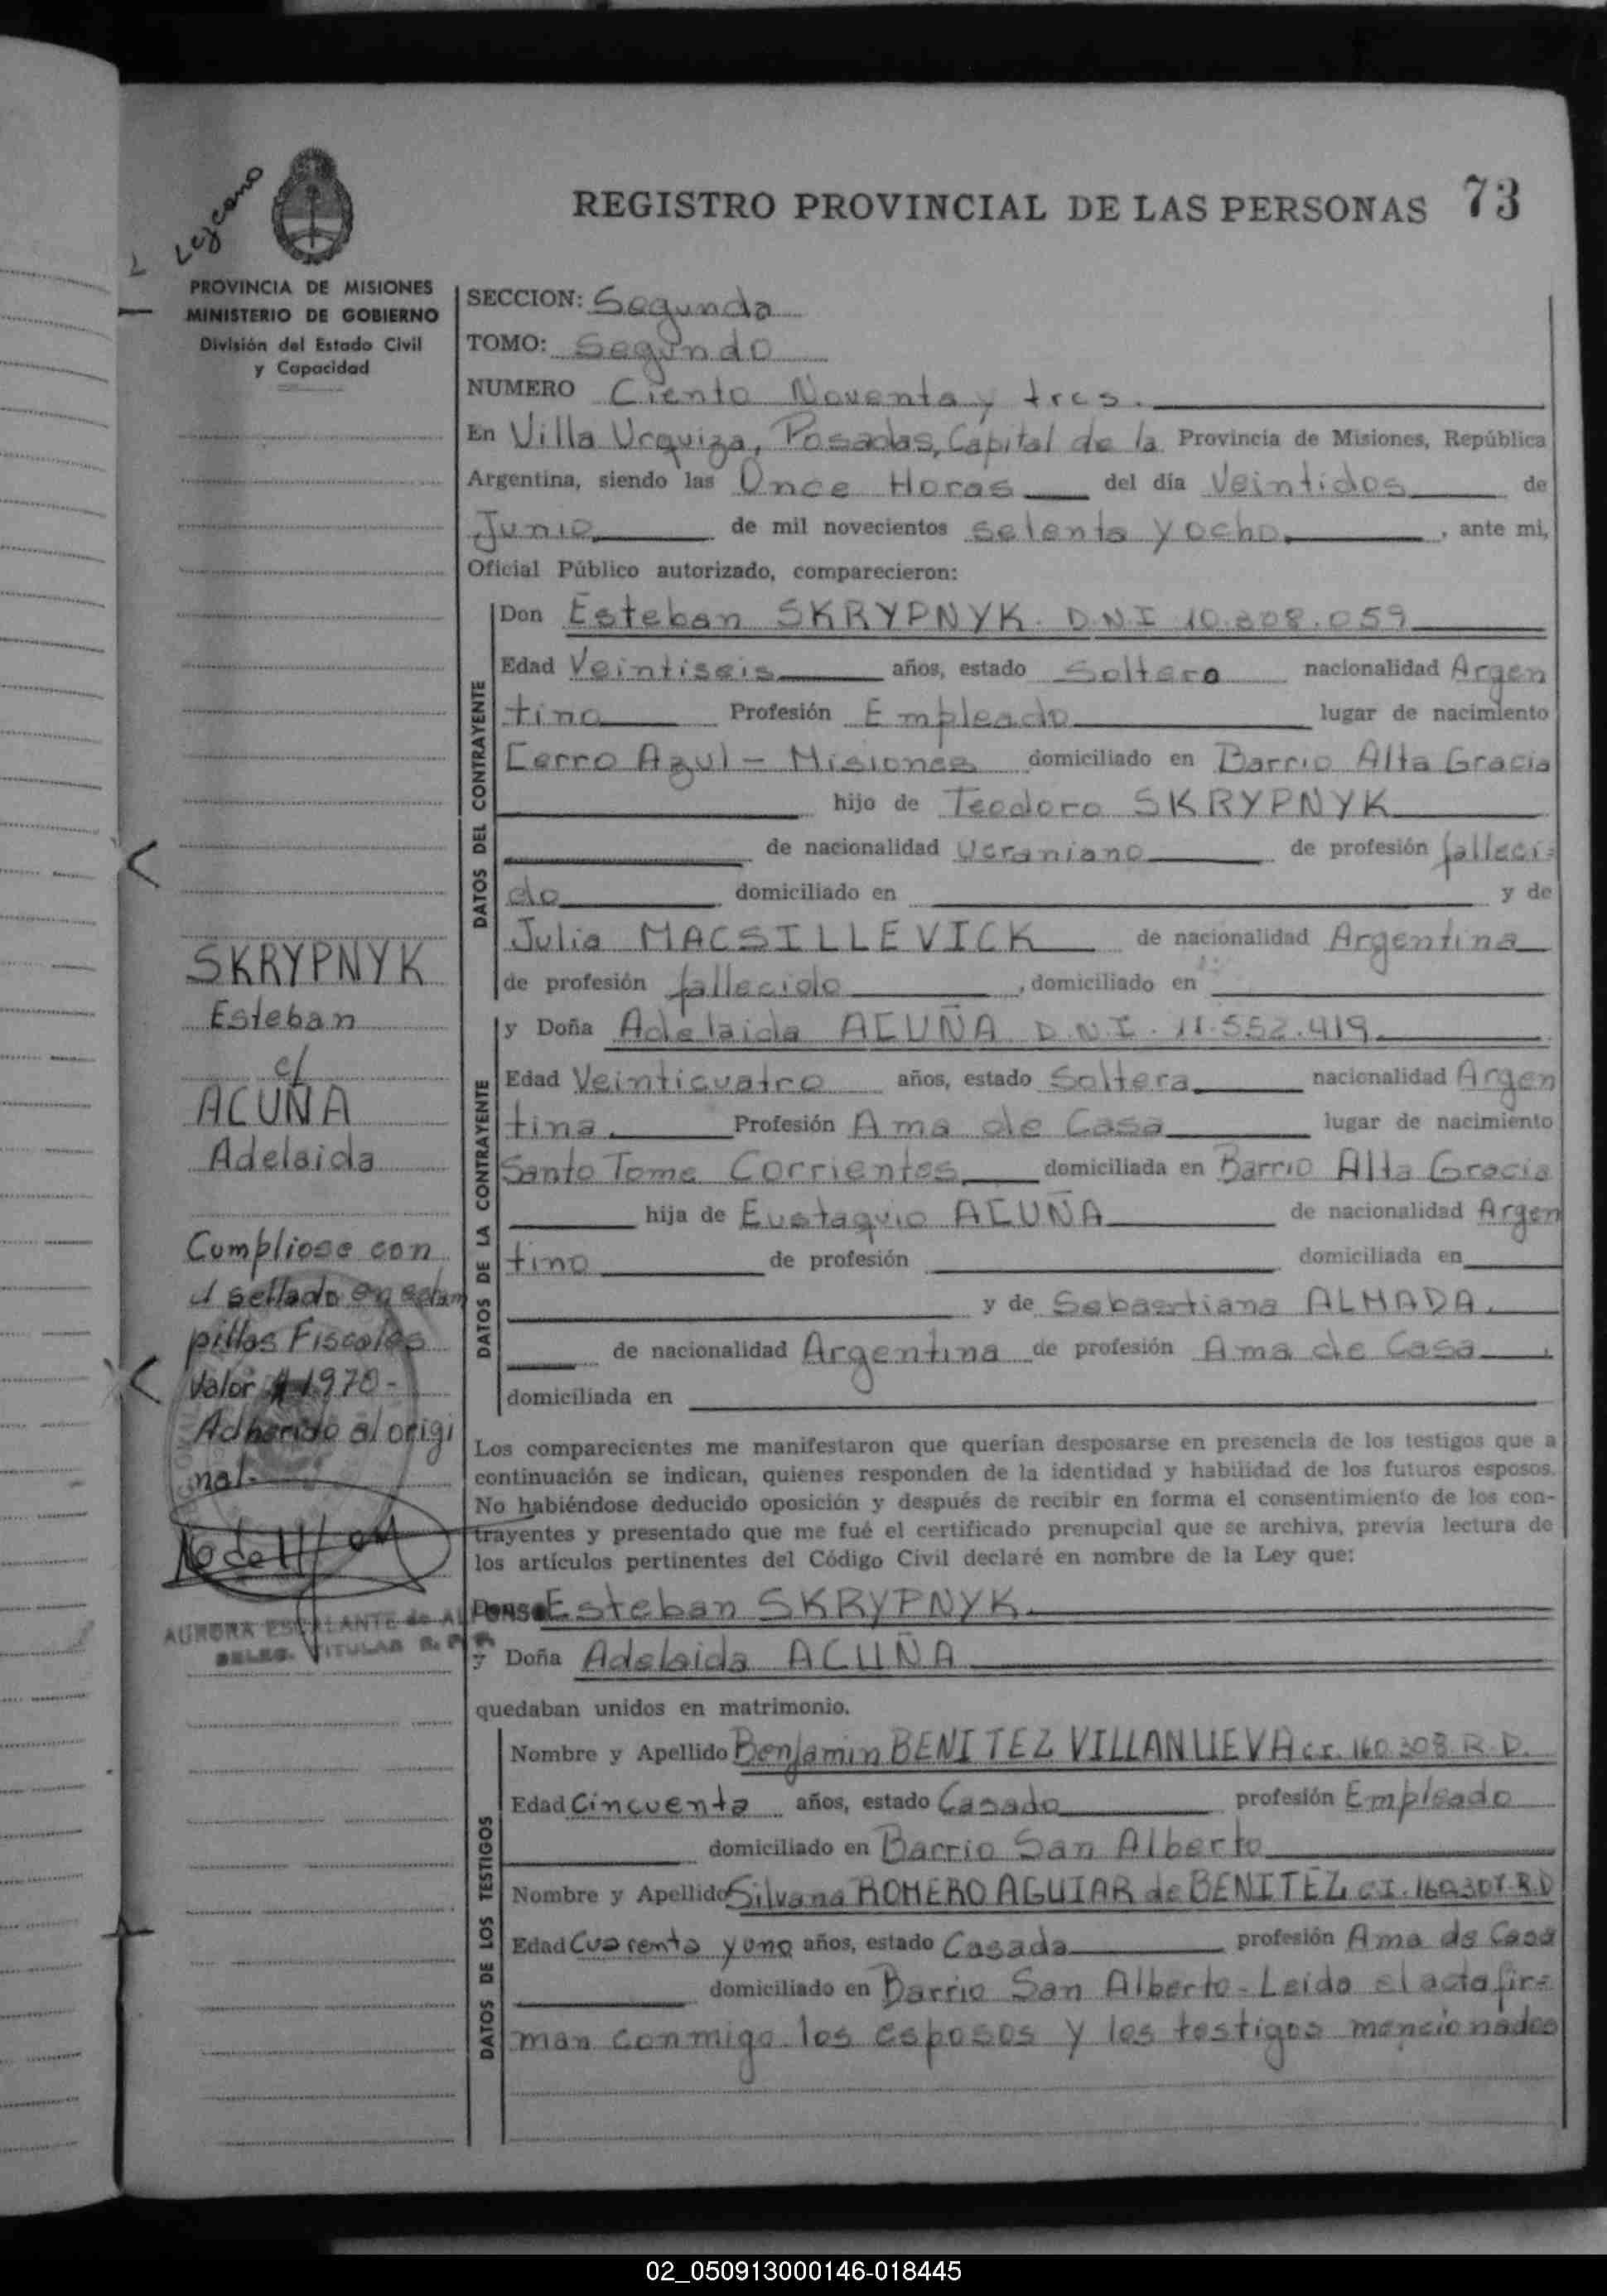 Lezcano
REGISTRO PROVINCIAL DE LAS PERSONAS 73
PROVINCIA DE MISIONES
MINISTERIO DE GOBIERNO
División del Estado Civil
y Capacidad
SECCION: Segunda
TOMO: Segundo
NUMERO Ciento Noventa y tres.
En Villa Urquiza, Posadas, Capital de la Provincia de Misiones, República
Argentina, siendo las Once Horas del día Veintidos de
Junio de mil novecientos setenta y ocho, ante mi,
Oficial Público autorizado, comparecieron:
DATOS DEL CONTRAYENTE
Don Esteban SKRYPNYK. D.N.I 10.808.059
Edad Veintiseis años, estado Soltero nacionalidad Argen
tino Profesión Empleado lugar de nacimiento
Cerro Azul - Misiones domiciliado en Barrio Alta Gracia
hijo de Teodoro SKRYPNYK
de nacionalidad Ucraniano de profesión falleci=
do domiciliado en y de
Julia MACSILLEVICK de nacionalidad Argentina
de profesión fallecido, domiciliado en
DATOS DE LA CONTRAYENTE
y Doña Adelaida ACUÑA D.N.I. 11.552.419
Edad Veinticuatro años, estado Soltera nacionalidad Argen
tina. Profesión Ama de Casa lugar de nacimiento
Santo Tome Corrientes domiciliada en Barrio Alta Gracia
hija de Eustaquio ACUÑA de nacionalidad Argen
tino de profesión domiciliada en
y de Sebastiana ALMADA.
de nacionalidad Argentina de profesión Ama de Casa,
domiciliada en
Los comparecientes me manifestaron que querían desposarse en presencia de los testigos que a
continuación se indican, quienes responden de la identidad y habilidad de los futuros esposos.
No habiéndose deducido oposición y después de recibir en forma el consentimiento de los con-
trayentes y presentado que me fué el certificado prenupcial que se archiva, previa lectura de
los artículos pertinentes del Código Civil declaré en nombre de la Ley que:
Esteban SKRYPNYK
y Doña Adelaida ACUÑA
quedaban unidos en matrimonio.
DATOS DE LOS TESTIGOS
Nombre y Apellido Benjamin BENITEZ VILLANUEVA C.I. 160.308 R.D.
Edad Cincuenta años, estado Casado profesión Empleado
domiciliado en Barrio San Alberto
Nombre y Apellido Silvana ROMERO AGUIAR de BENITEZ C.I. 160.307.R.D
Edad Cuarenta y uno años, estado Casada profesión Ama de Casa
domiciliado en Barrio San Alberto - Leida el acta fir=
man conmigo los esposos y los testigos mencionados
SKRYPNYK
Esteban
c/
ACUÑA
Adelaida
Cumpliose con
el sellado en estam
pillas Fiscales
Valor $ 1970-
Adherido al origi
nal-
AURORA ESCALANTE de ALFONSO
DELEG. TITULAR R. P. P.
02_050913000146-018445